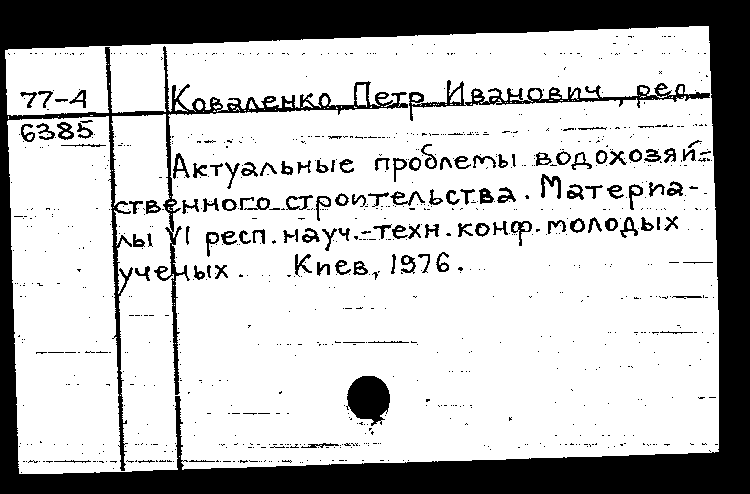 77-А Коваленко, Петр Иванович, ред.
6385
Актуальные проблемы водохозяй-
ственного строительства. Материа-
лы VI респ. науч.-техн. конф. молодых
ученых. Киев, 1976.